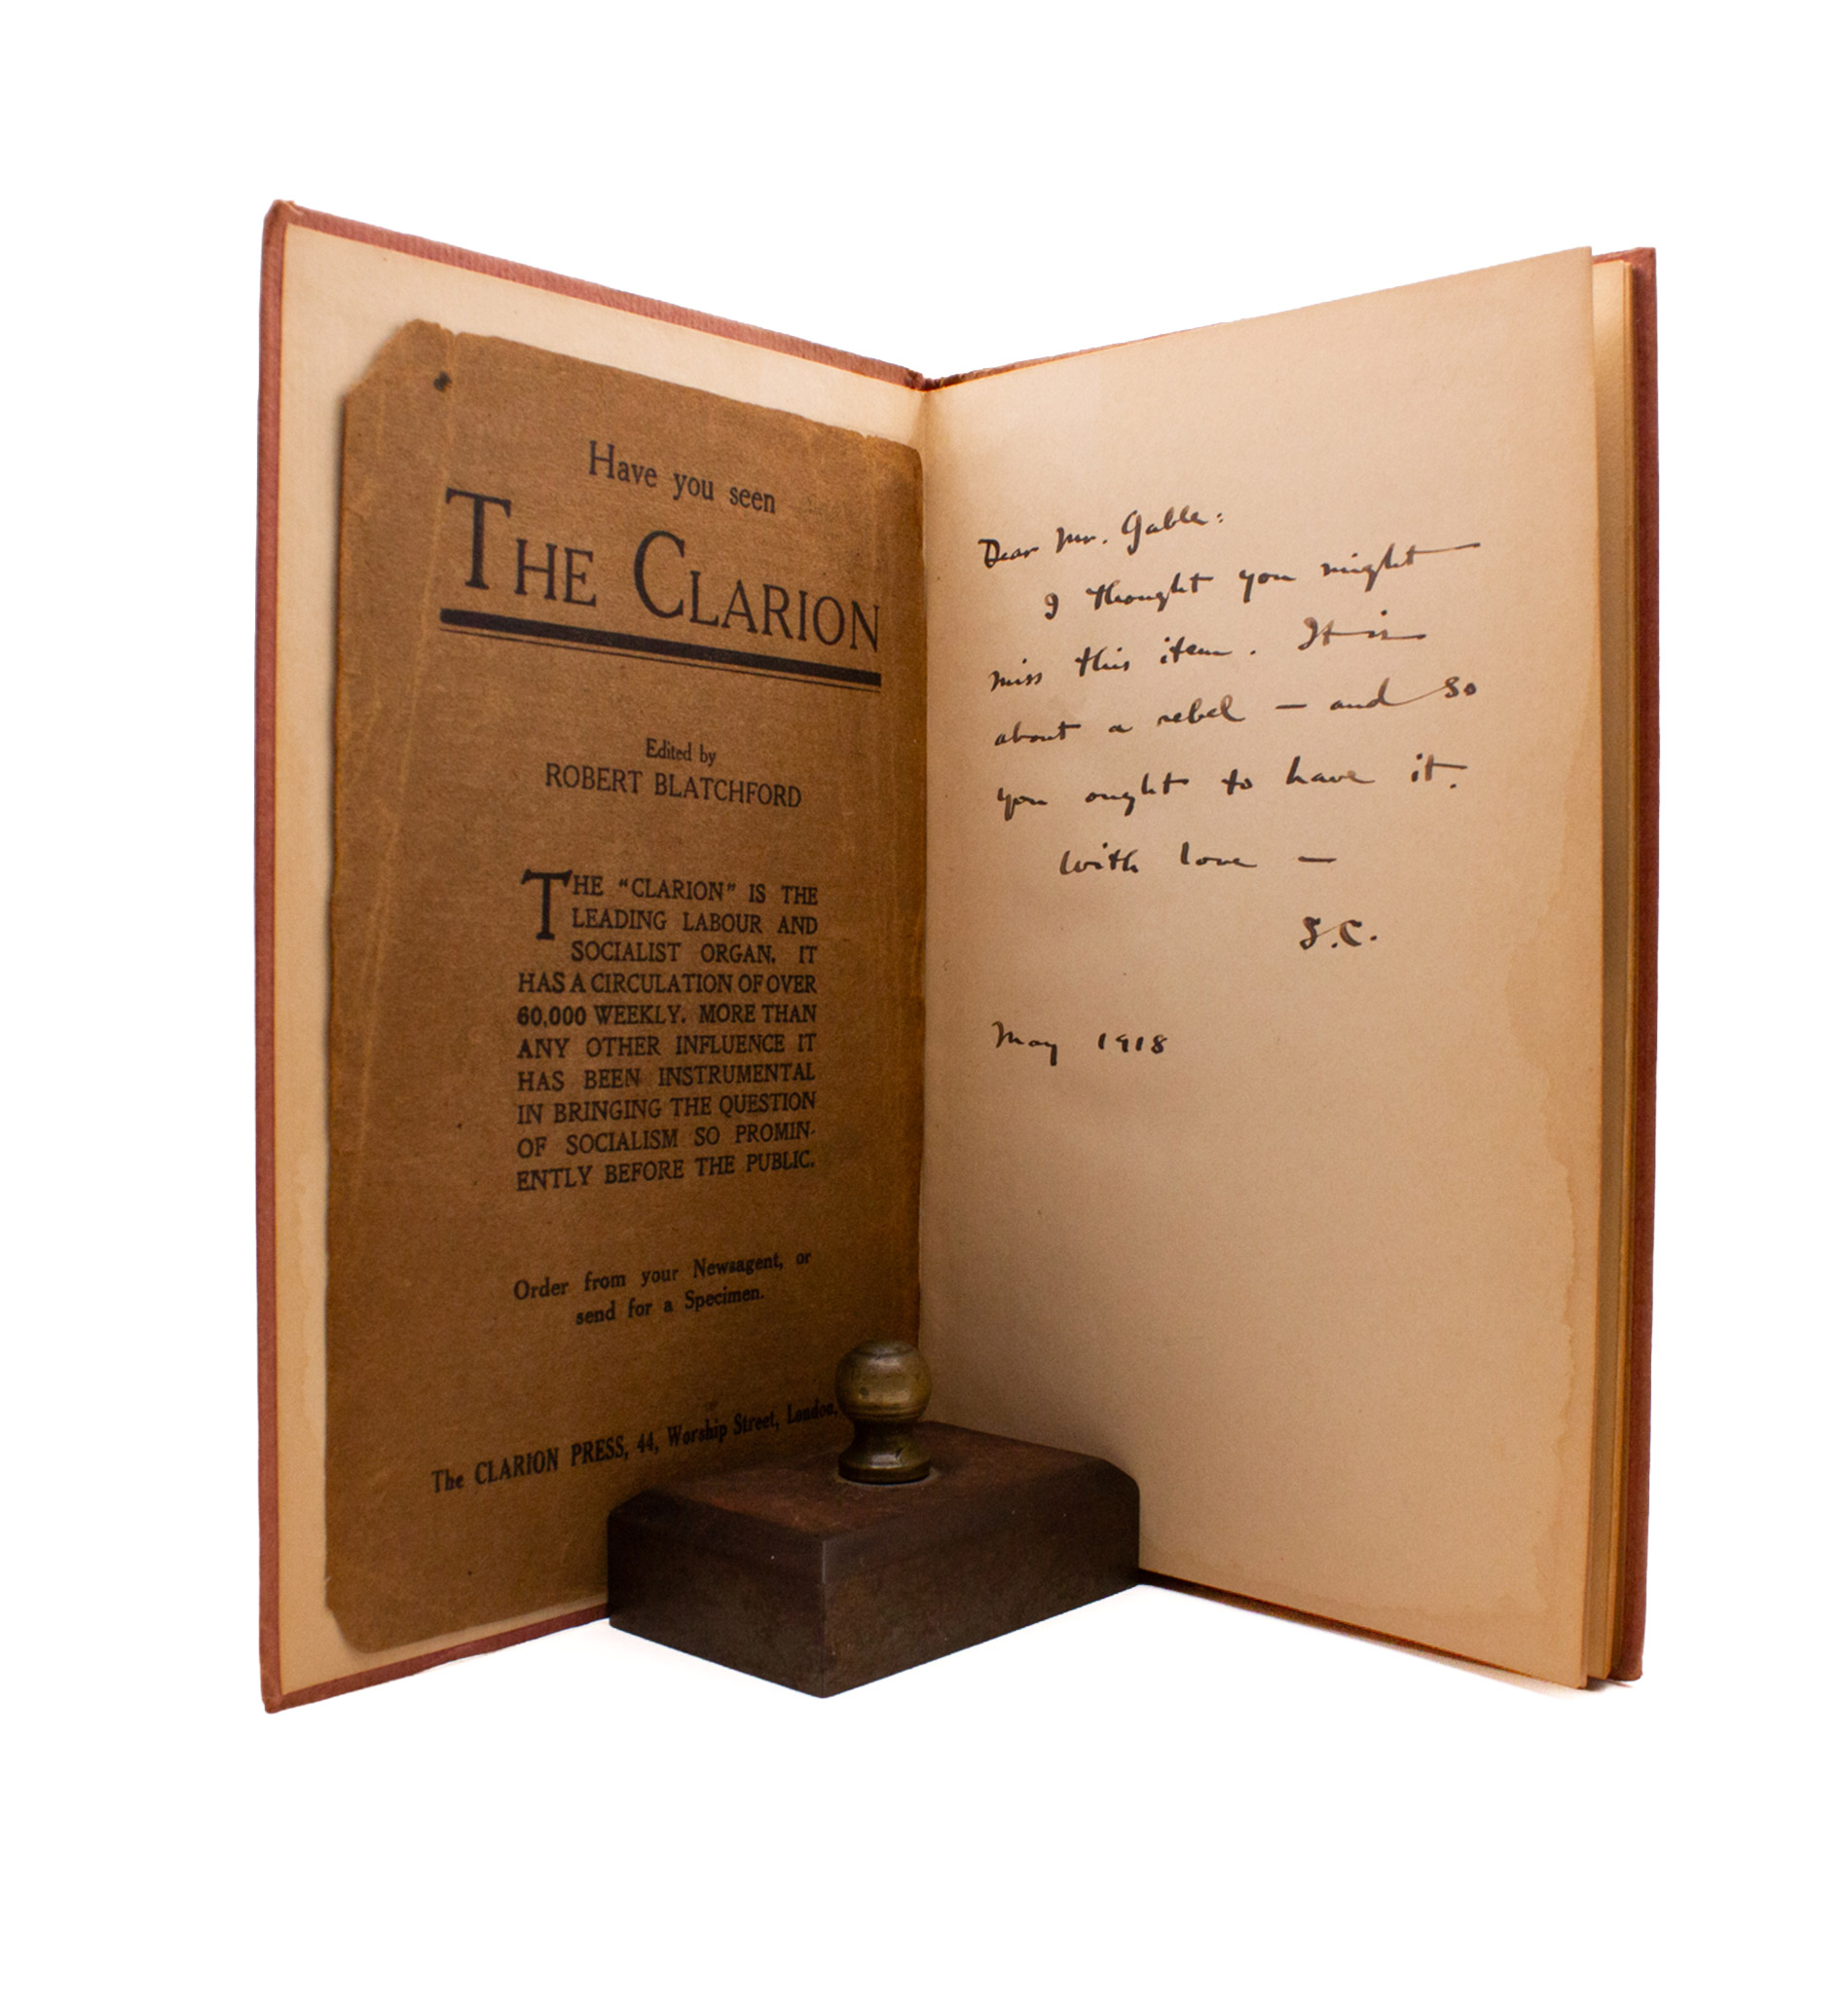 Have you seen
THE CLARION
Edited by
ROBERT BLATCHFORD
THE "CLARION" IS THE
LEADING LABOUR AND
SOCIALIST ORGAN. IT
HAS A CIRCULATION OF OVER
60,000 WEEKLY. MORE THAN
ANY OTHER INFLUENCE IT
HAS BEEN INSTRUMENTAL
IN BRINGING THE QUESTION
OF SOCIALISM SO PROMIN-
ENTLY BEFORE THE PUBLIC.
Order from your Newsagent, or
send for a Specimen.
The CLARION PRESS, 44, Worship Street, London,
Dear Mr. Gable:
I thought you might
miss this item. It is
about a rebel — and so
you ought to have it.
With love —
S.C.
May 1918